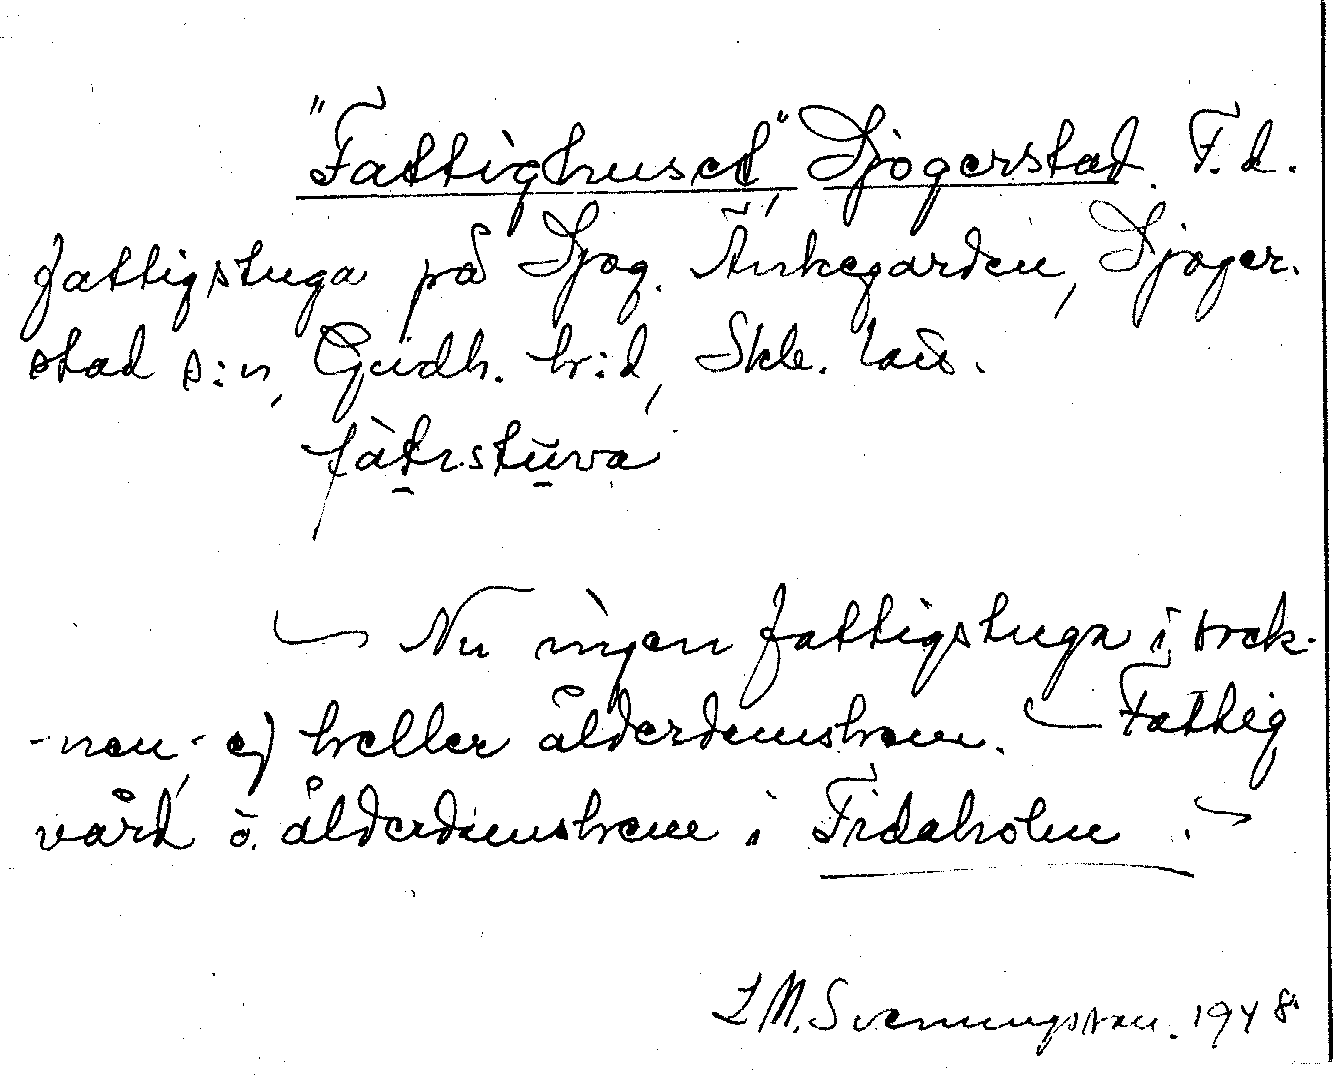 "Fattighuset", Sjogerstad. F.d.
fattigstuga på Sjog. Änkegården, Sjoger-
stad s:n, Gudh. h:d, Skb. län.
fàtɩstūva
— Nu ingen fattigstuga i sock-
-nen, ej heller ålderdomshem. — Fattig
vård o. ålderdomshem i Fidaholm.
L M. Svenningsson. 1948